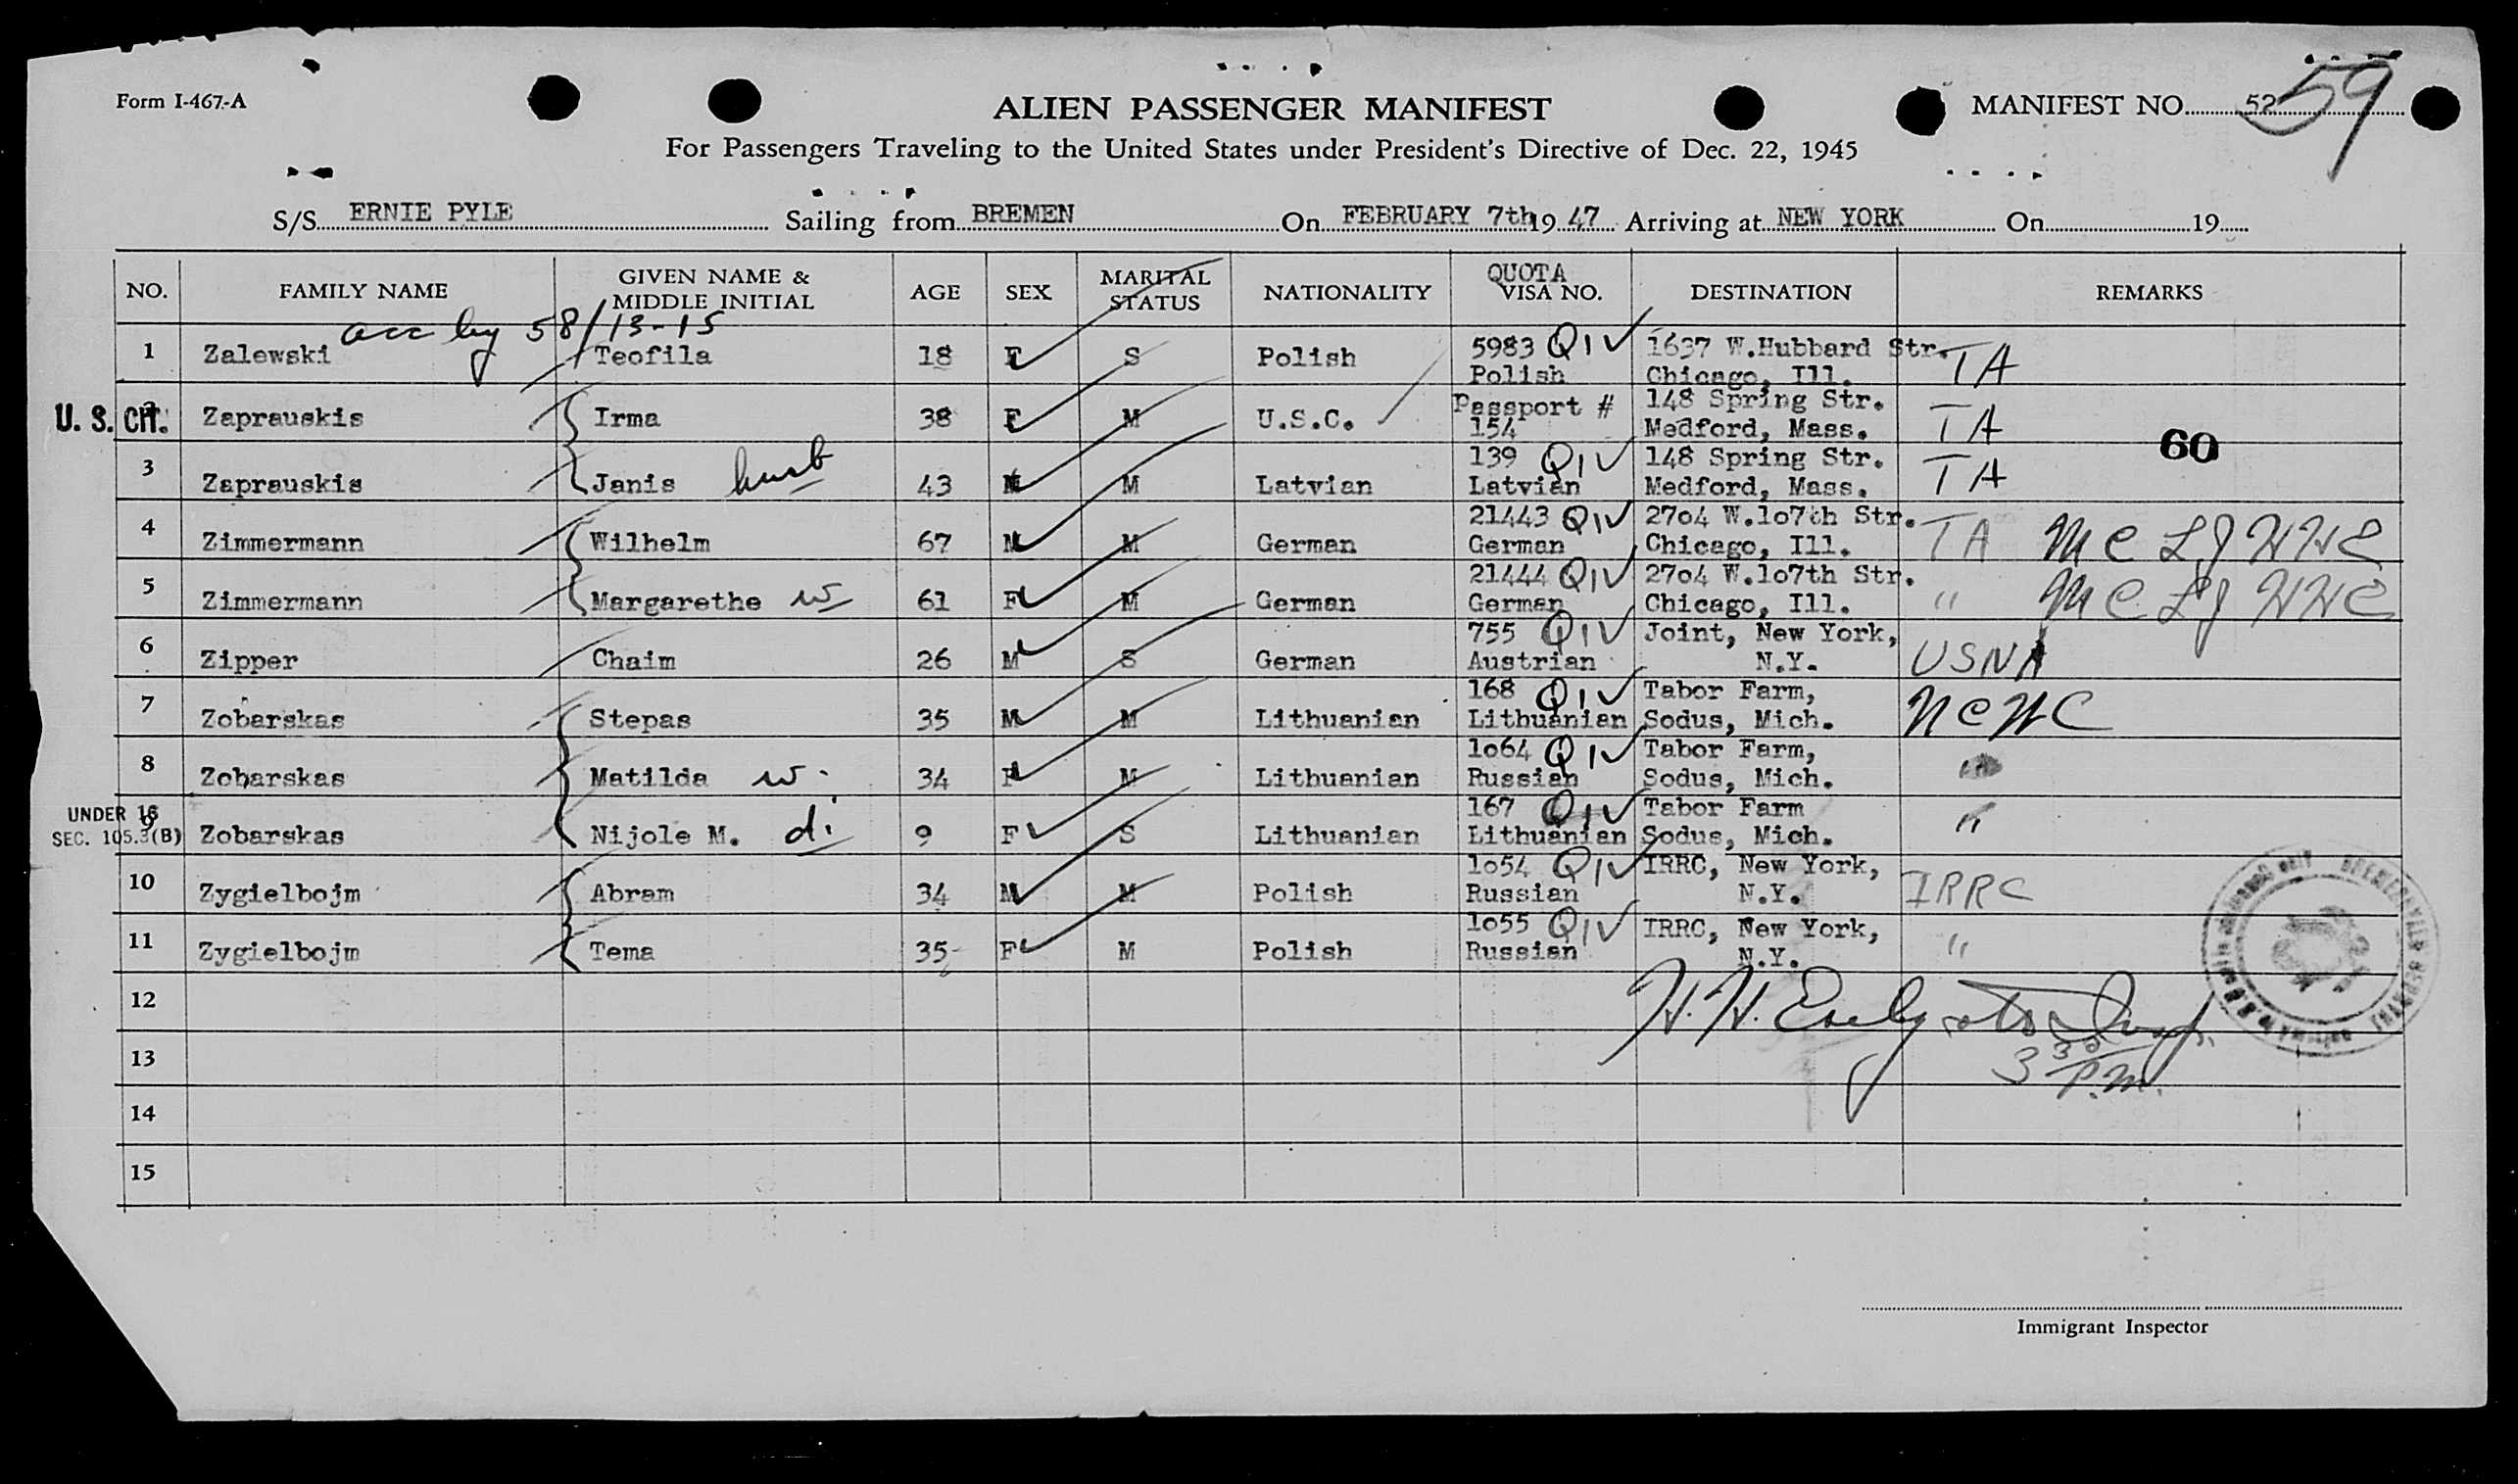 Form I-467-A
ALIEN PASSENGER MANIFEST
MANIFEST NO. 52 59
For Passengers Traveling to the United States under President's Directive of Dec. 22, 1945
S/S ERNIE PYLE Sailing from BREMEN On FEBRUARY 7th 19 47 Arriving at NEW YORK On 19
NO. FAMILY NAME GIVEN NAME & MIDDLE INITIAL AGE SEX MARITAL STATUS NATIONALITY QUOTA VISA NO. DESTINATION REMARKS
acc by 58/13-15
1 Zalewski Teofila 18 F S Polish 5983 QIV Polish 1637 W.Hubbard Str. Chicago, Ill. TA
U. S. CIT. 2 Zaprauskis Irma 38 F M U.S.C. Passport # 154 148 Spring Str. Medford, Mass. TA
60
3 Zaprauskis Janis husb 43 M M Latvian 139 QIV Latvian 148 Spring Str. Medford, Mass. TA
4 Zimmermann Wilhelm 67 M M German 21443 QIV German 2704 W.lo7th Str. Chicago, Ill. TA
5 Zimmermann Margarethe w 61 F M German 21444 QIV German 2704 W.lo7th Str. Chicago, Ill. "
6 Zipper Chaim 26 M S German 755 QIV Austrian Joint, New York, N.Y. USNA
7 Zobarskas Stepas 35 M M Lithuanian 168 QIV Lithuanian Tabor Farm, Sodus, Mich. NCWC
8 Zobarskas Matilda w. 34 F M Lithuanian 1o64 QIV Russian Tabor Farm, Sodus, Mich.
UNDER 16
SEC. 105.3(B) 9 Zobarskas Nijole M. d. 9 F S Lithuanian 167 QIV Lithuanian Tabor Farm Sodus, Mich. "
10 Zygielbojm Abram 34 M M Polish 1o54 QIV Russian IRRC, New York, N.Y. IRRC
11 Zygielbojm Tema 35 F M Polish 1o55 QIV Russian IRRC, New York, N.Y. "
12
13
3 30 P.M.
14
15
Immigrant Inspector